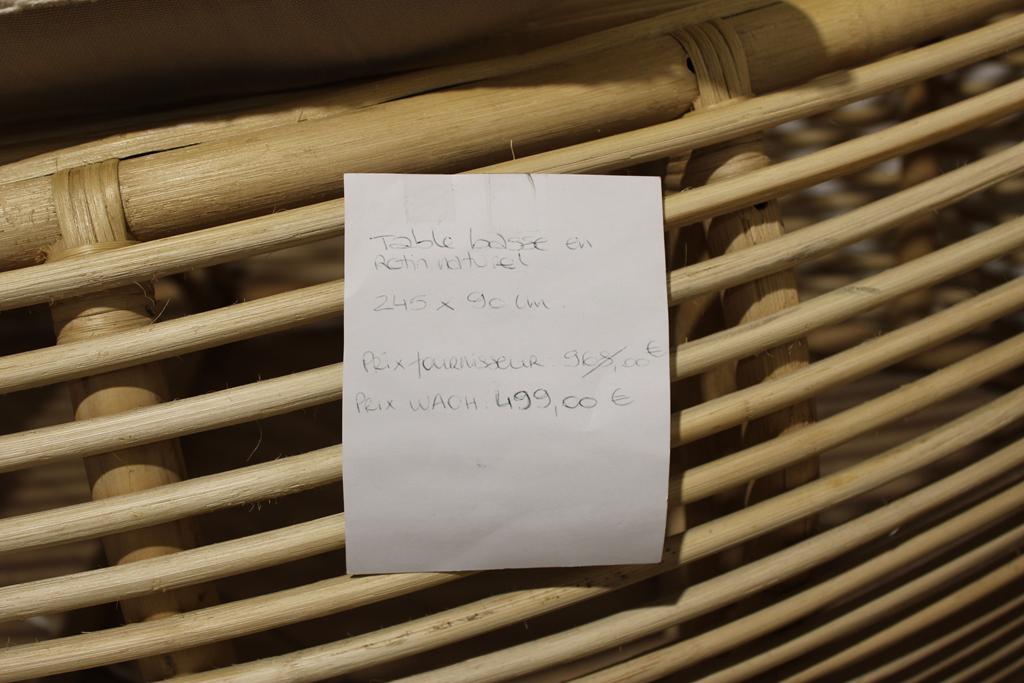 Table basse en
Rotin naturel
245 x 90 cm.
PRIX fournisseur: 965,00 €
PRIX WAOH: 499,00 €